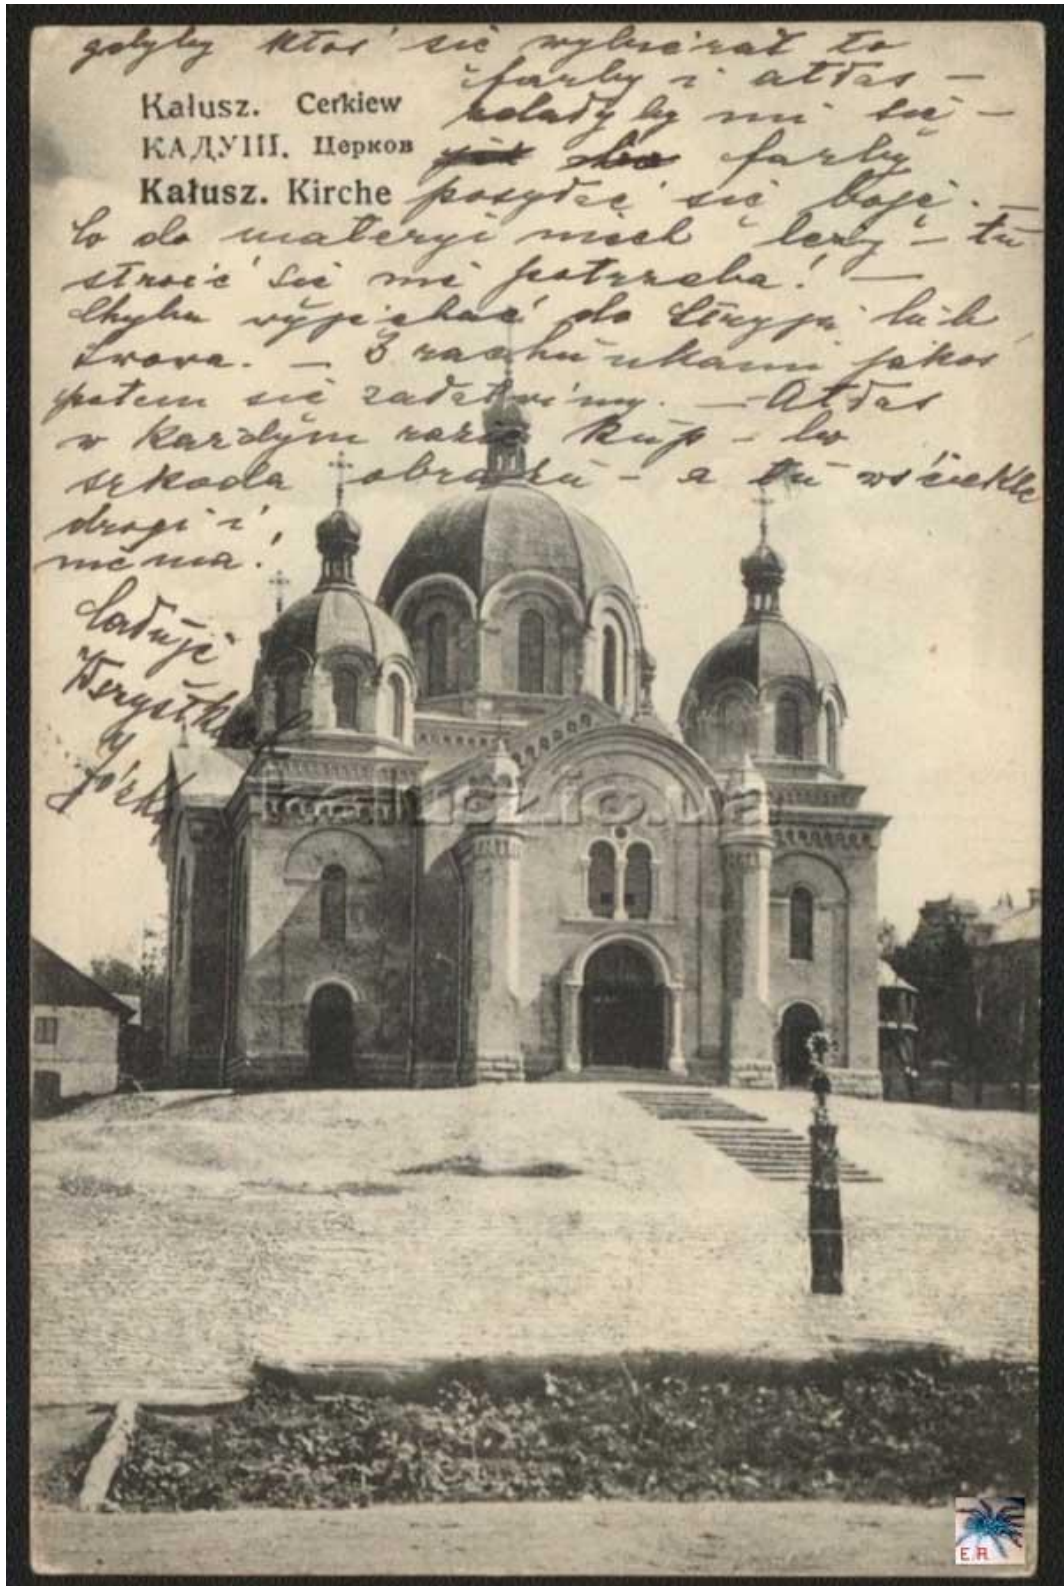 gdyby ktoś się wybierał to
farby i atłas —
zdały by mi się —
farby
posyłać się boję. —
Co do materyi niech leży — tu
stroić się nie potrzeba! —
Chyba wyjechać do Stryja lub
Lwowa. — Z rachunkami jakoś
potem się załatwimy. — Atłas
w każdym razie kup — bo
szkoda obrazu — a tu wściekle
drogi i
niema!
Całuję
Kałusz. Cerkiew
КАДУШ. Церков
Kałusz. Kirche
kalusz.io.ua
E.A.